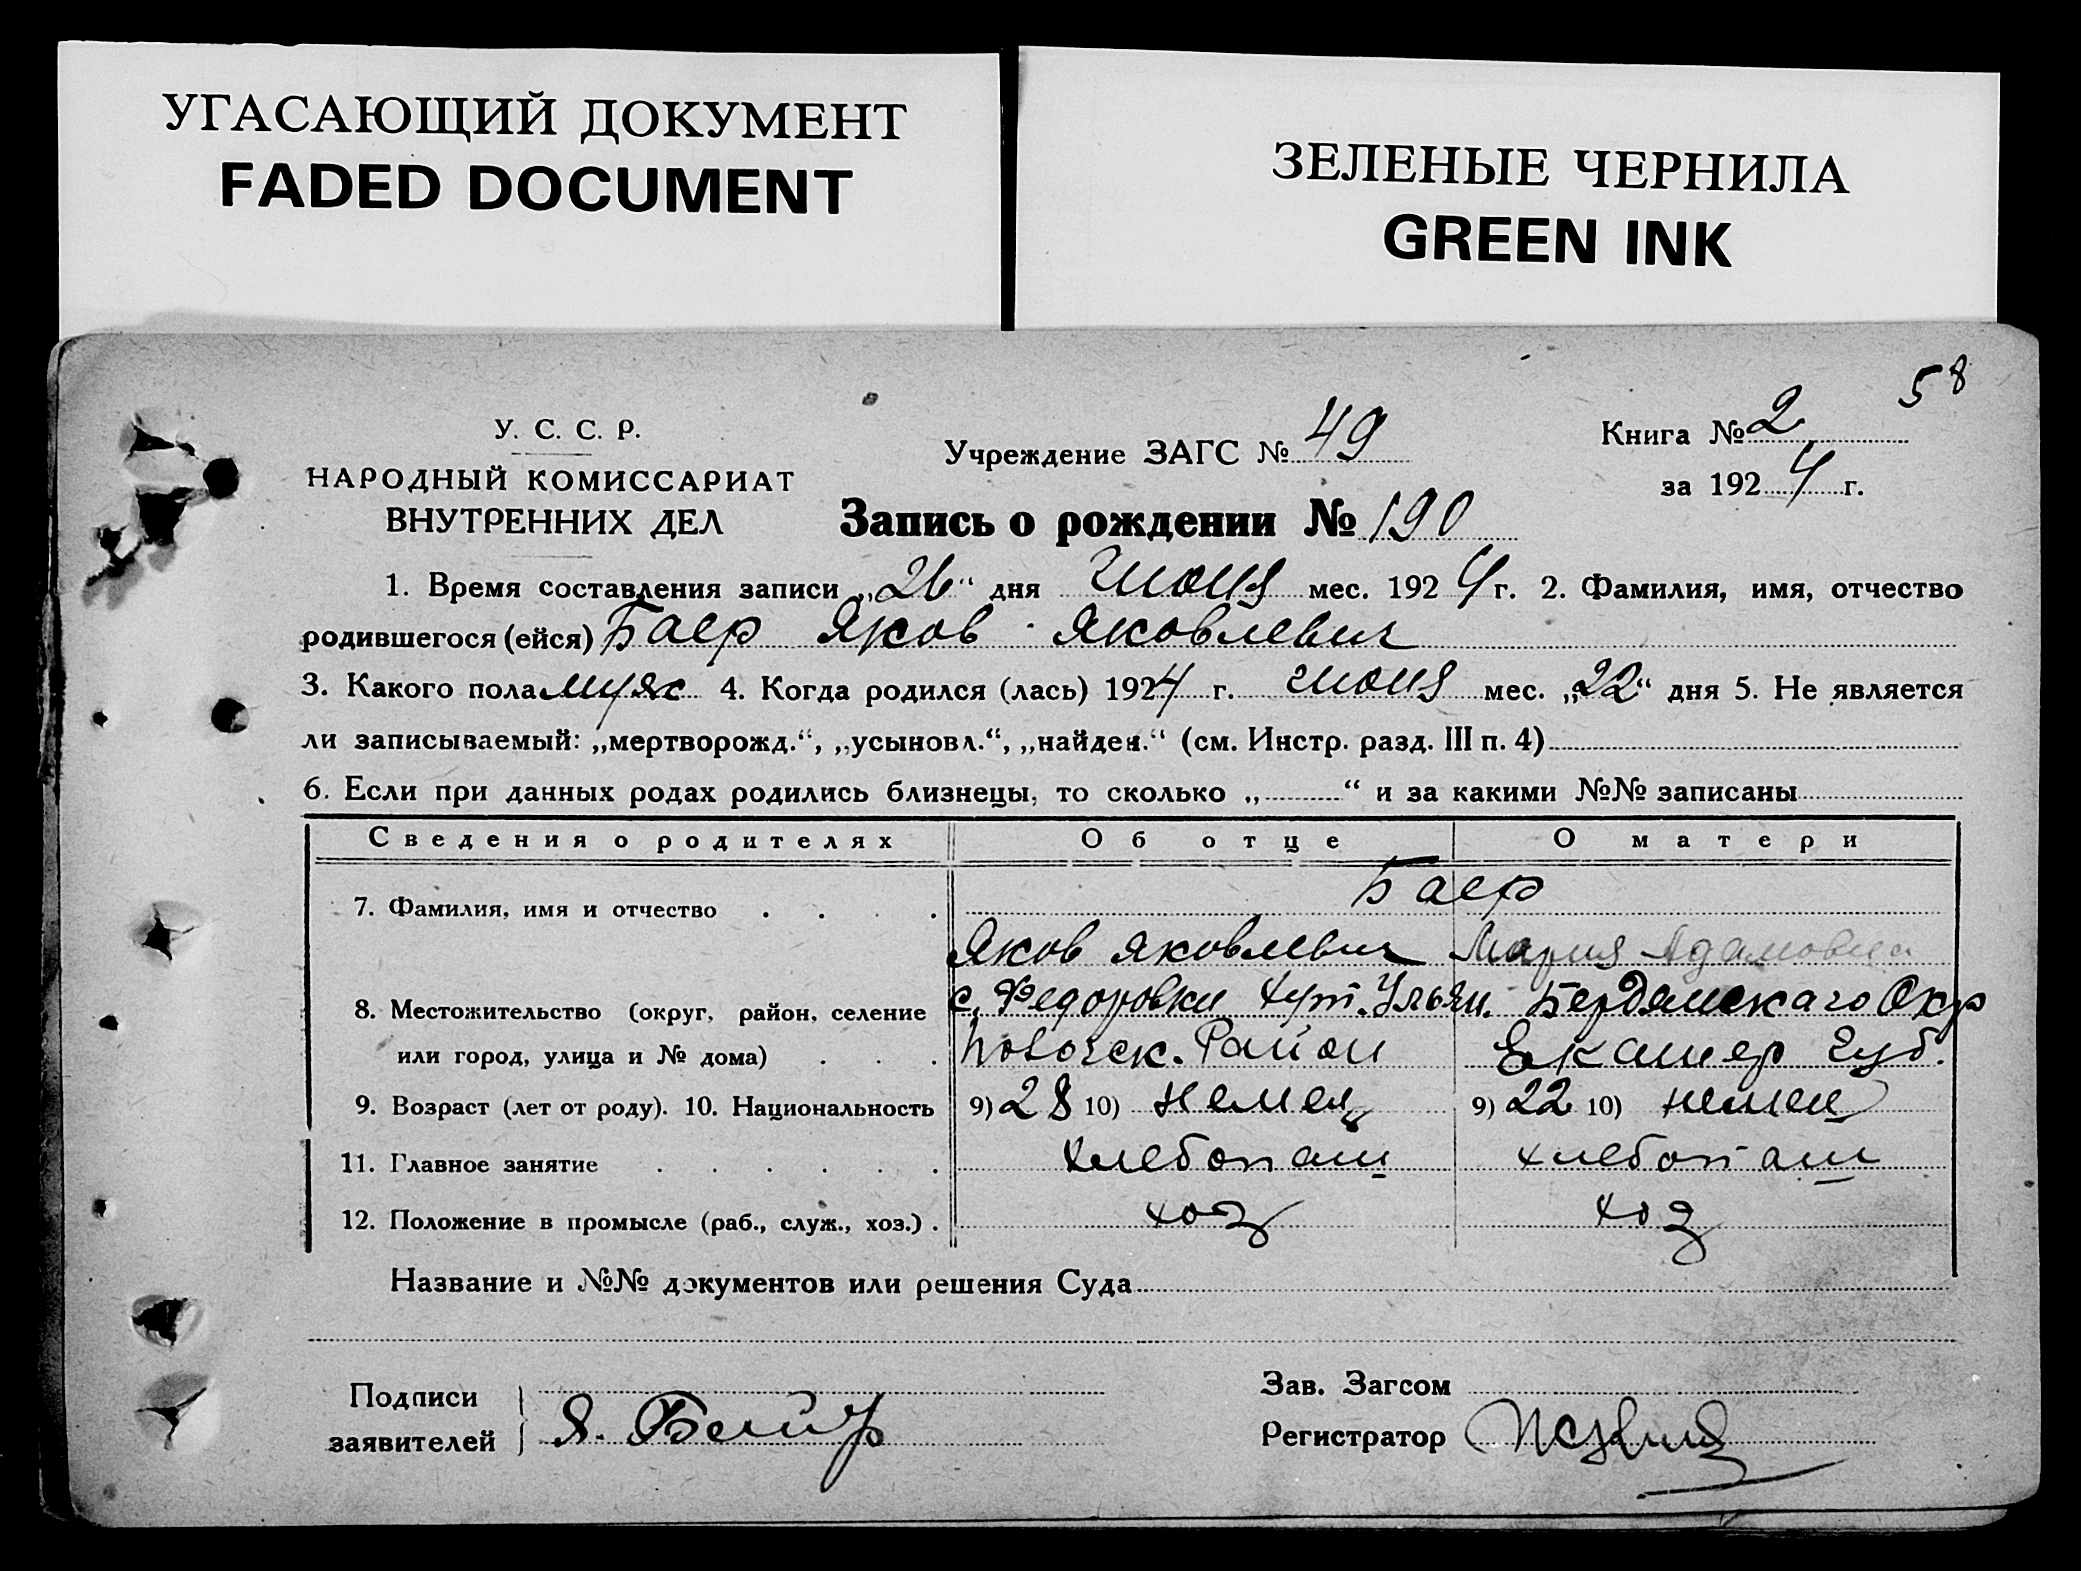 УГАСАЮЩИЙ ДОКУМЕНТ
FADED DOCUMENT
ЗЕЛЕНЫЕ ЧЕРНИЛА
GREEN INK
58
У. С. С. Р.
НАРОДНЫЙ КОМИССАРИАТ
ВНУТРЕННИХ ДЕЛ
Учреждение ЗАГС № 49
Книга № 2
за 1924 г.
Запись о рождении № 190
1. Время составления записи „26“ дня Июня мес. 1924 г. 2. Фамилия, имя, отчество
родившегося (ейся) Баер Яков Яковлевич
3. Какого пола муж 4. Когда родился (лась) 1924 г. Июня мес. „22“ дня 5. Не является
ли записываемый: „мертворожд.“, „усыновл.“, „найден.“ (см. Инстр. разд. III п. 4)
6. Если при данных родах родились близнецы, то сколько „ “ и за какими №№ записаны
Сведения о родителях Об отце О матери
7. Фамилия, имя и отчество Баер
Яков Яковлевич Мария Адамовна
8. Местожительство (округ, район, селение с. Федоровки хут. Ульян. Бердянскаго Окр
или город, улица и № дома) Район Екатер губ.
9. Возраст (лет от роду). 10. Национальность 9) 28 10) немец 9) 22 10) немец
11. Главное занятие хлебопаш хлебопаш
12. Положение в промысле (раб., служ., хоз.) хоз хоз
Название и №№ документов или решения Суда
Подписи
заявителей Я. Бейер
Зав. Загсом
Регистратор